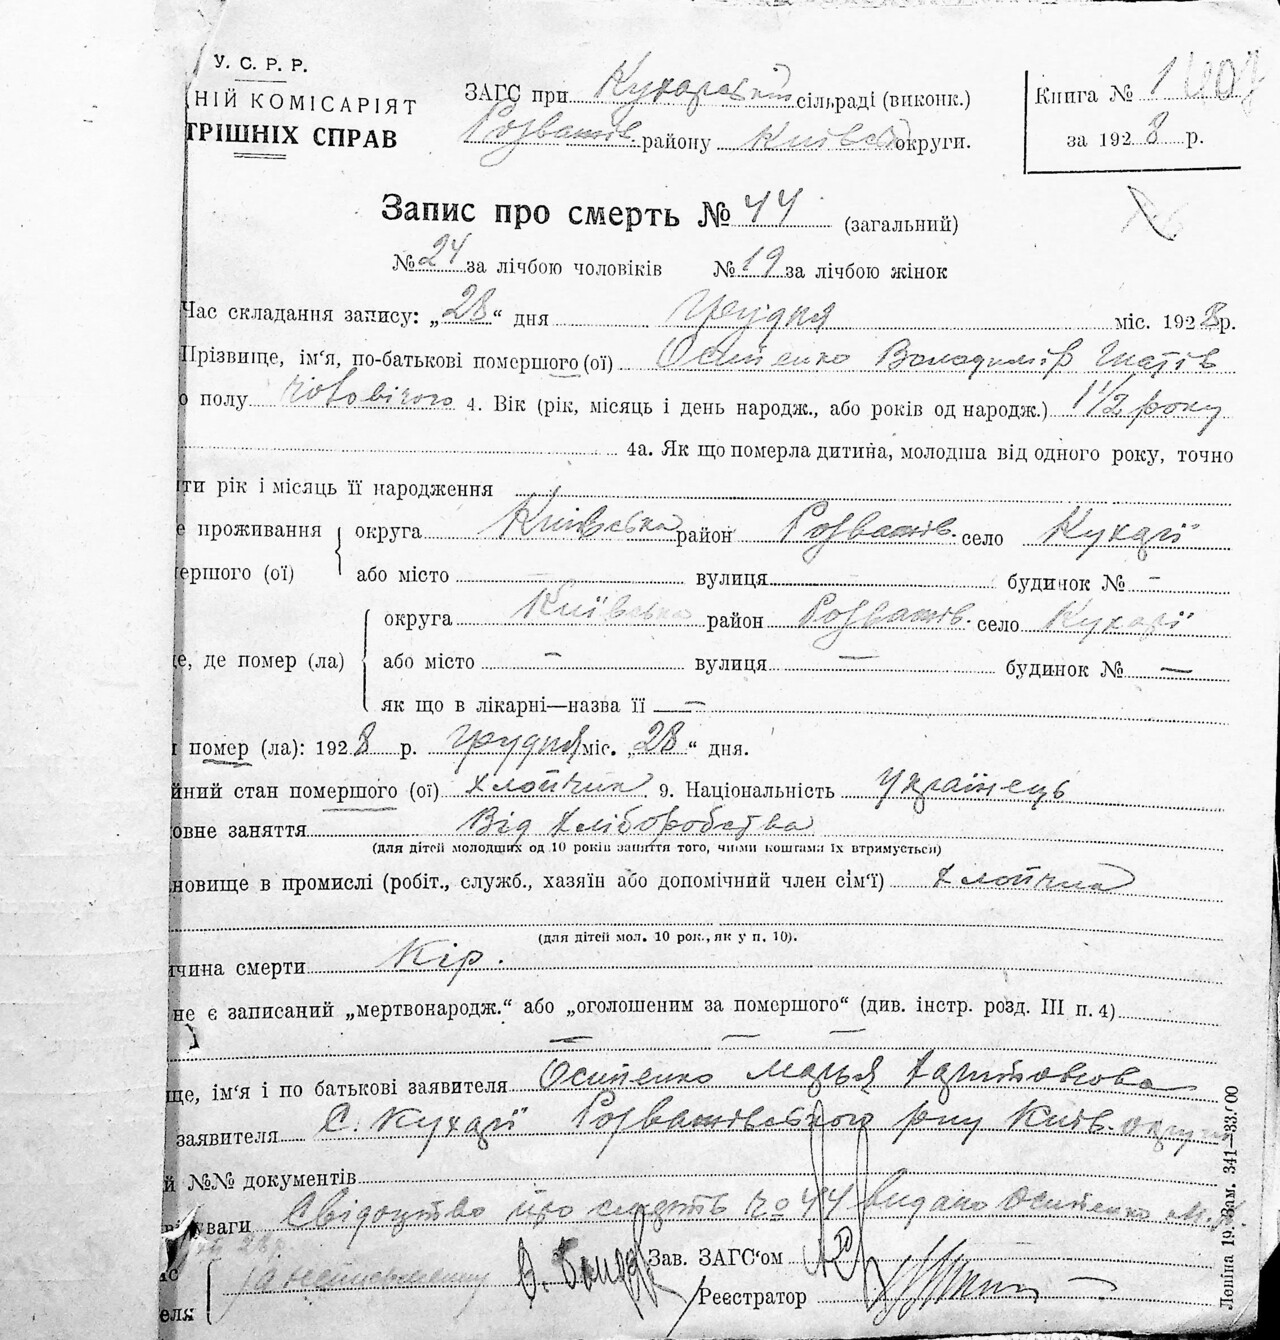 У. С. Р. Р.
НІЙ КОМІСАРІЯТ
ТРІШНІХ СПРАВ
ЗАГС при Кухарській сільраді (виконк.)
Розважів. району Київської округи.
Книга № 1
за 1928 р.
Запис про смерть № 44 (загальний)
№ 24 за лічбою чоловіків № 19 за лічбою жінок
Час складання запису: „28“ дня грудня міс. 1928 р.
Прізвище, ім‘я, по-батькові помершого (ої) Осипенко Володимір Гнатів
о полу чоловічого 4. Вік (рік, місяць і день народж., або років од народж.) 1 1/2 року
4а. Як що померла дитина, молодша від одного року, точно
ти рік і місяць її народження
е проживання округа Київська район Розважів. село Кухарі
ершого (ої) або місто вулиця — будинок № –
округа Київська район Розважів. село Кухарі
е, де помер (ла) або місто – вулиця — будинок № —
як що в лікарні—назва її —
помер (ла): 1928 р. грудня міс. „28“ дня.
йний стан помершого (ої) хлопчик 9. Національність Українець
овне заняття Від хліборобства
(для дітей молодших од 10 років заняття того, чиїми коштами їх втримується)
новище в промислі (робіт., служб., хазяїн або допомічний член сім‘ї) хлопчик
(для дітей мол. 10 рок., як у п. 10).
чина смерти Кір.
не є записаний „мертвонародж.“ або „оголошеним за помершого“ (див. інстр. розд. III п. 4)
— — —
ще, ім‘я і по батькові заявителя Осипенко Марья
заявителя С. Кухарі Розважівського р-ну Київ. округи
й №№ документів
уваги Свідоцтво про смерть № 44 видано Осипенко М.
за неписьменну
Зав. ЗАГС‘ом
Реєстратор
еля
Леніна 19. Зам. 341—33.000